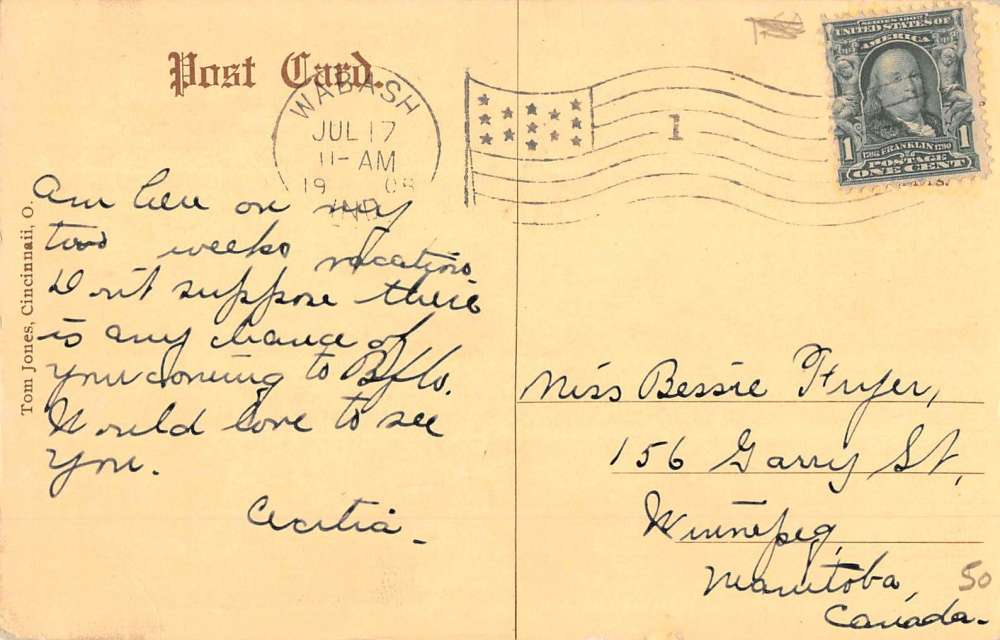 Post Card.
WABASH
JUL 17
11-AM
1908
IND.
1
SERIES 1902
UNITED STATES OF
AMERICA
1
1706 FRANKLIN 1790
1
POSTAGE
ONE CENT
Tom Jones, Cincinnaii, O.
Am here on my
two weeks vacation
Don't suppose there
is any chance of
you coming to Bflo.
Would love to see
you.
Cecilia -
Miss Bessie Fryer,
156 Garry St,
Winnepeg,
Manitoba,
Canada-
50